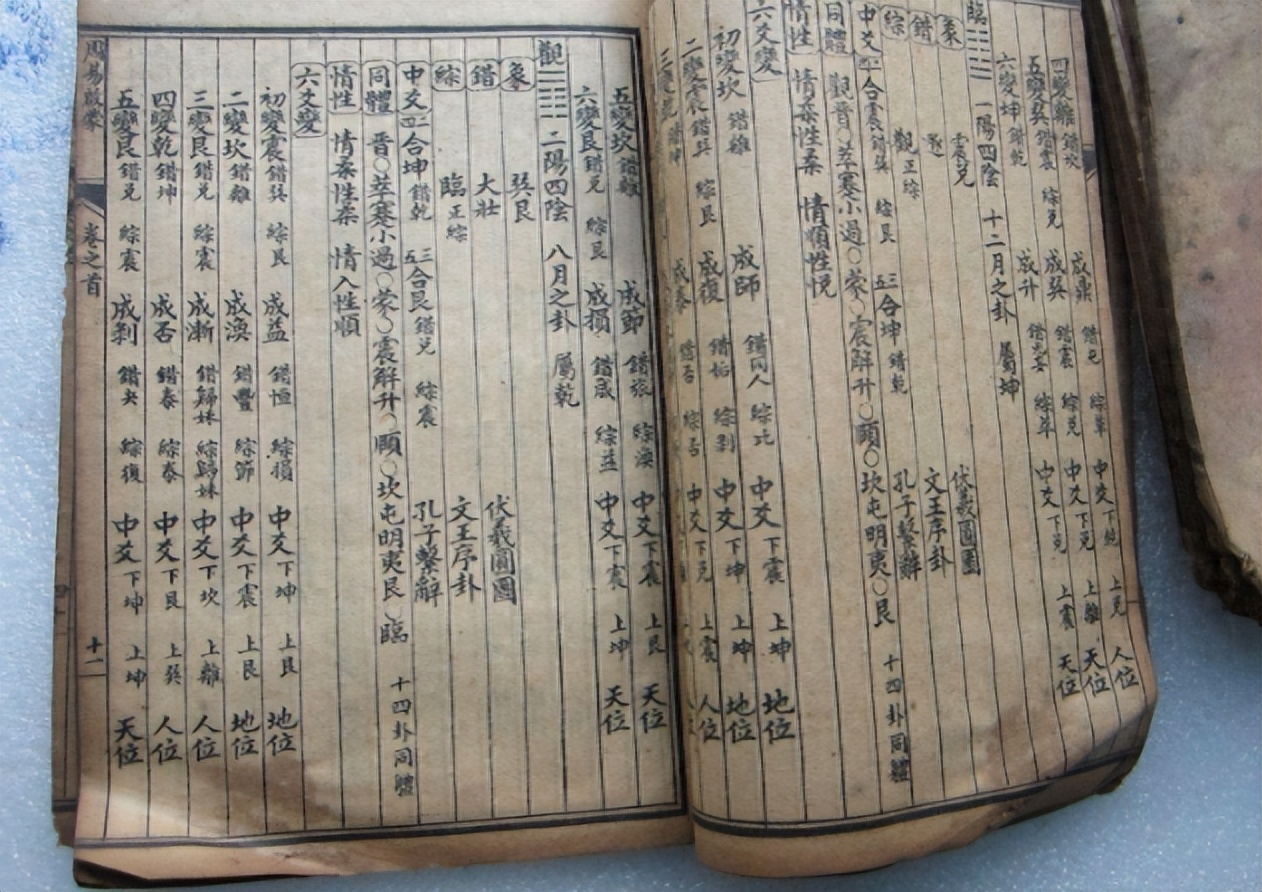 四變離 錯坎 成鼎 錯屯 綜革 中爻下乾 上兌 人位
五變巽 錯震 綜兌 成巽 錯震 綜兌 中爻下兌 上離 天位
六變坤 錯乾 成升 錯无妄 綜萃 中爻下兌 上震 天位
臨䷒ 二陽四陰 十二月之卦 屬坤
象 震兌 伏羲圓圖
錯 遯 文王序卦
綜 觀正綜 孔子繫辭
中爻 二四合震 錯巽 綜艮 三五合坤 錯乾
同體 觀晉○萃蹇小過○蒙○震解升○頤○坎屯明夷○艮 十四卦同體
情性 情柔性柔 情順性悅
六爻變
初變坎 錯離 成師 錯同人 綜比 中爻下震 上坤 地位
二變震 錯巽 綜艮 成復 錯姤 綜剝 中爻下坤 上坤 地位
三變乾 錯坤 成泰 錯否 綜否 中爻下兌 上震 人位
五變坎 錯離 成節 錯旅 綜渙 中爻下震 上艮 天位
六變艮 錯兌 綜艮 成損 錯咸 綜益 中爻下震 上坤 天位
觀䷓ 二陽四陰 八月之卦 屬乾
象 巽艮 伏羲圓圖
錯 大壯 文王序卦
綜 臨正綜 孔子繫辭
中爻 二四合坤 錯乾 三五合艮 錯兌 綜震
同體 晉○萃蹇小過○蒙○震解升○頤○坎屯明夷艮○臨 十四卦同體
情性 情柔性柔 情入性順
六爻變
初變震 錯巽 綜艮 成益 錯恒 綜損 中爻下坤 上艮 地位
二變坎 錯離 成渙 錯豐 綜節 中爻下震 上艮 地位
三變艮 錯兌 綜震 成漸 錯歸妹 綜歸妹 中爻下坎 上離 人位
四變乾 錯坤 成否 錯泰 綜泰 中爻下艮 上巽 人位
五變艮 錯兌 綜震 成剝 錯夬 綜復 中爻下坤 上坤 天位
周易啟蒙 卷之首 十一